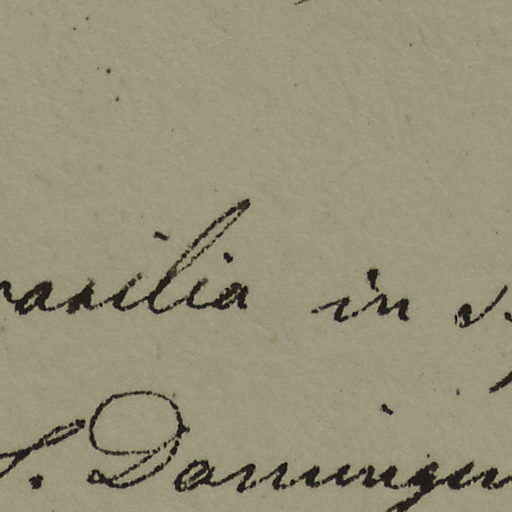 rasilia in
S. Domingen